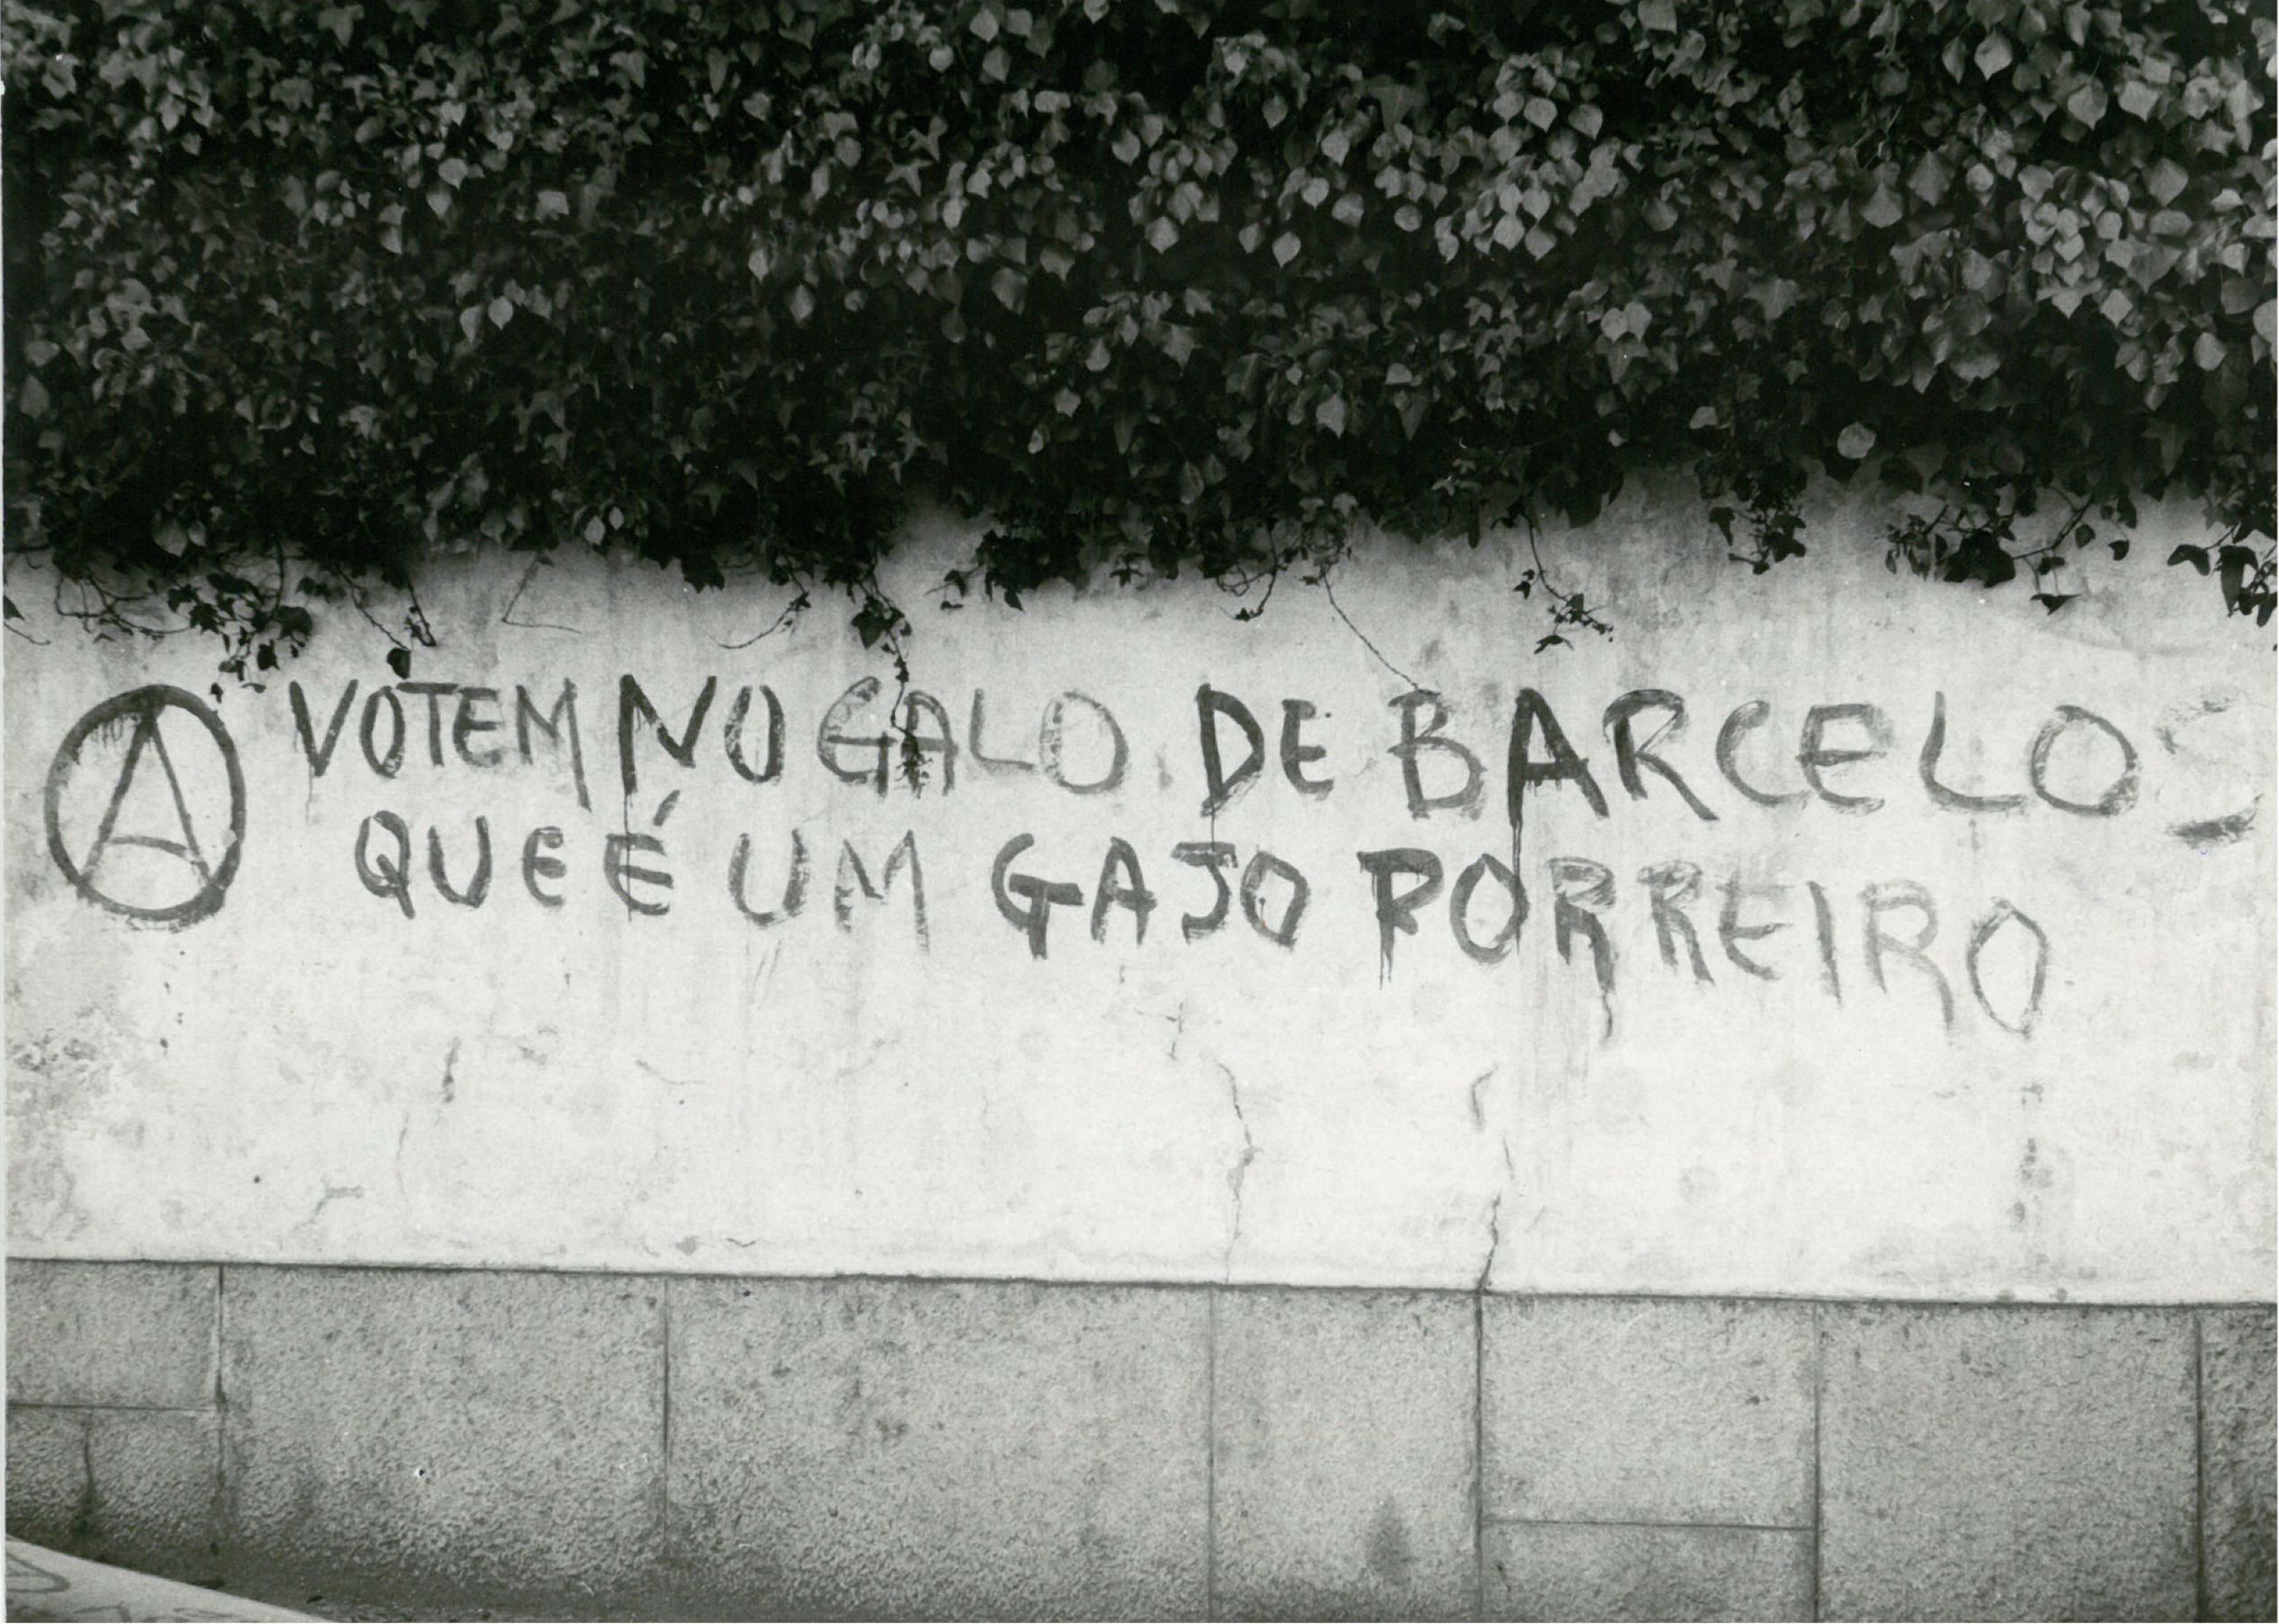 Ⓐ VOTEM NO GALO DE BARCELOS
QUE É UM GAJO PORREIRO